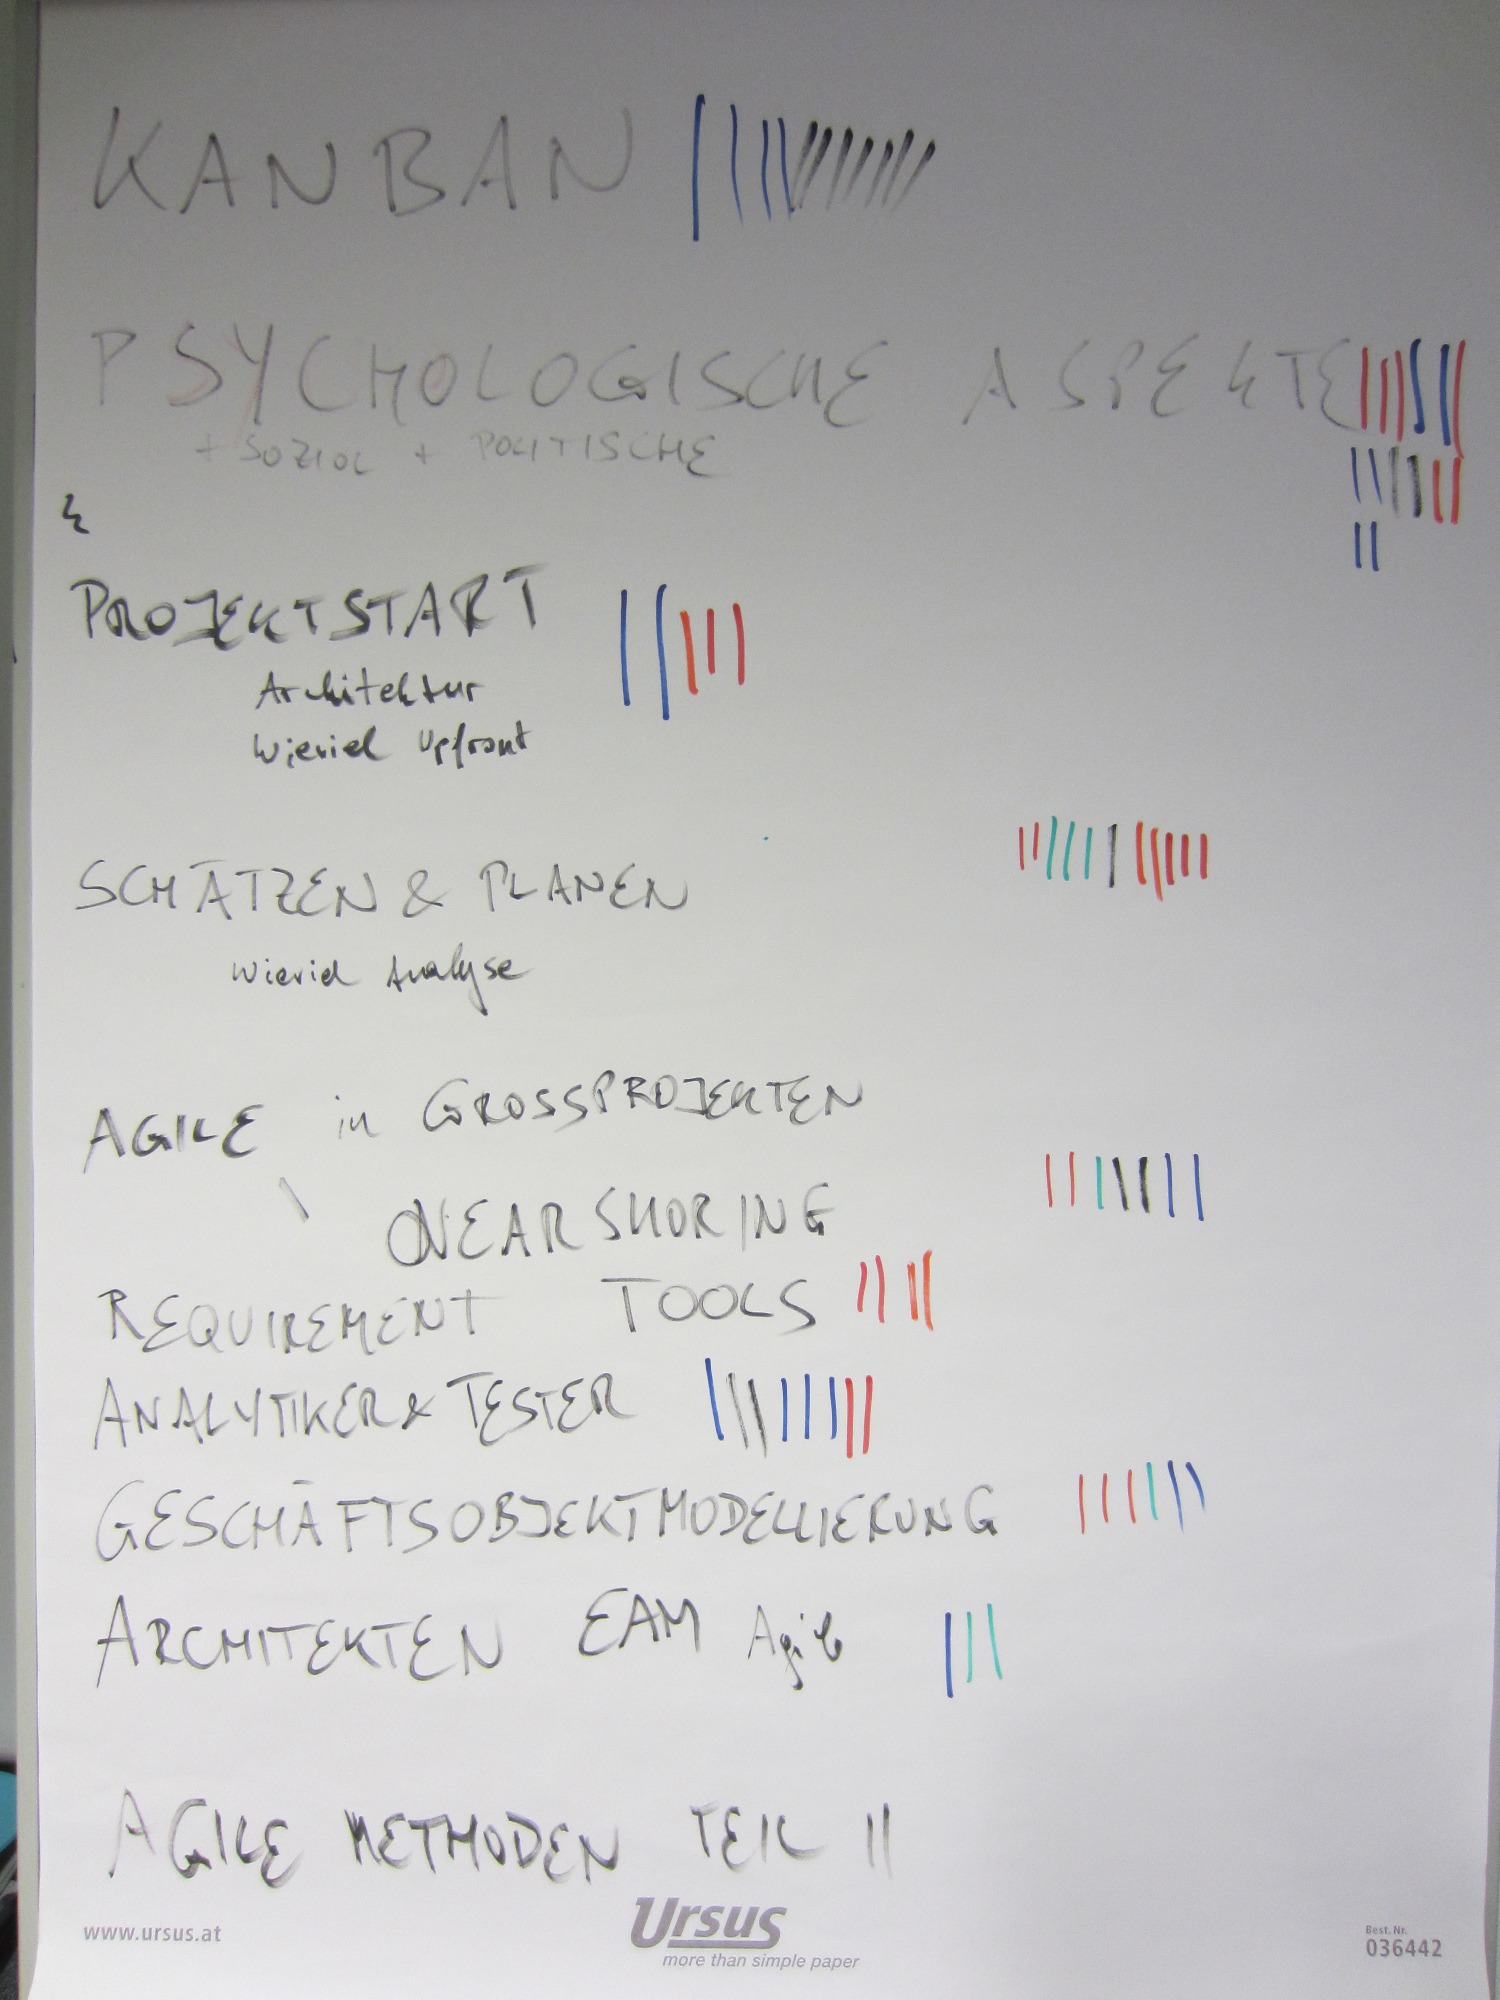 KANBAN
PSYCHOLOGISCHE ASPEKTE
+ SOZIOL + POLITISCHE
PROJEKTSTART
Architektur
Wieviel Upfront
SCHÄTZEN & PLANEN
Wieviel Analyse
AGILE in GROSSPROJEKTEN
NEARSHORING
REQUIREMENT TOOLS
ANALYTIKER & TESTER
GESCHÄFTSOBJEKTMODELLIERUNG
ARCHITEKTEN EAM Agile
AGILE METHODEN TEIL II
www.ursus.at
Ursus
more than simple paper
Best. Nr.
036442